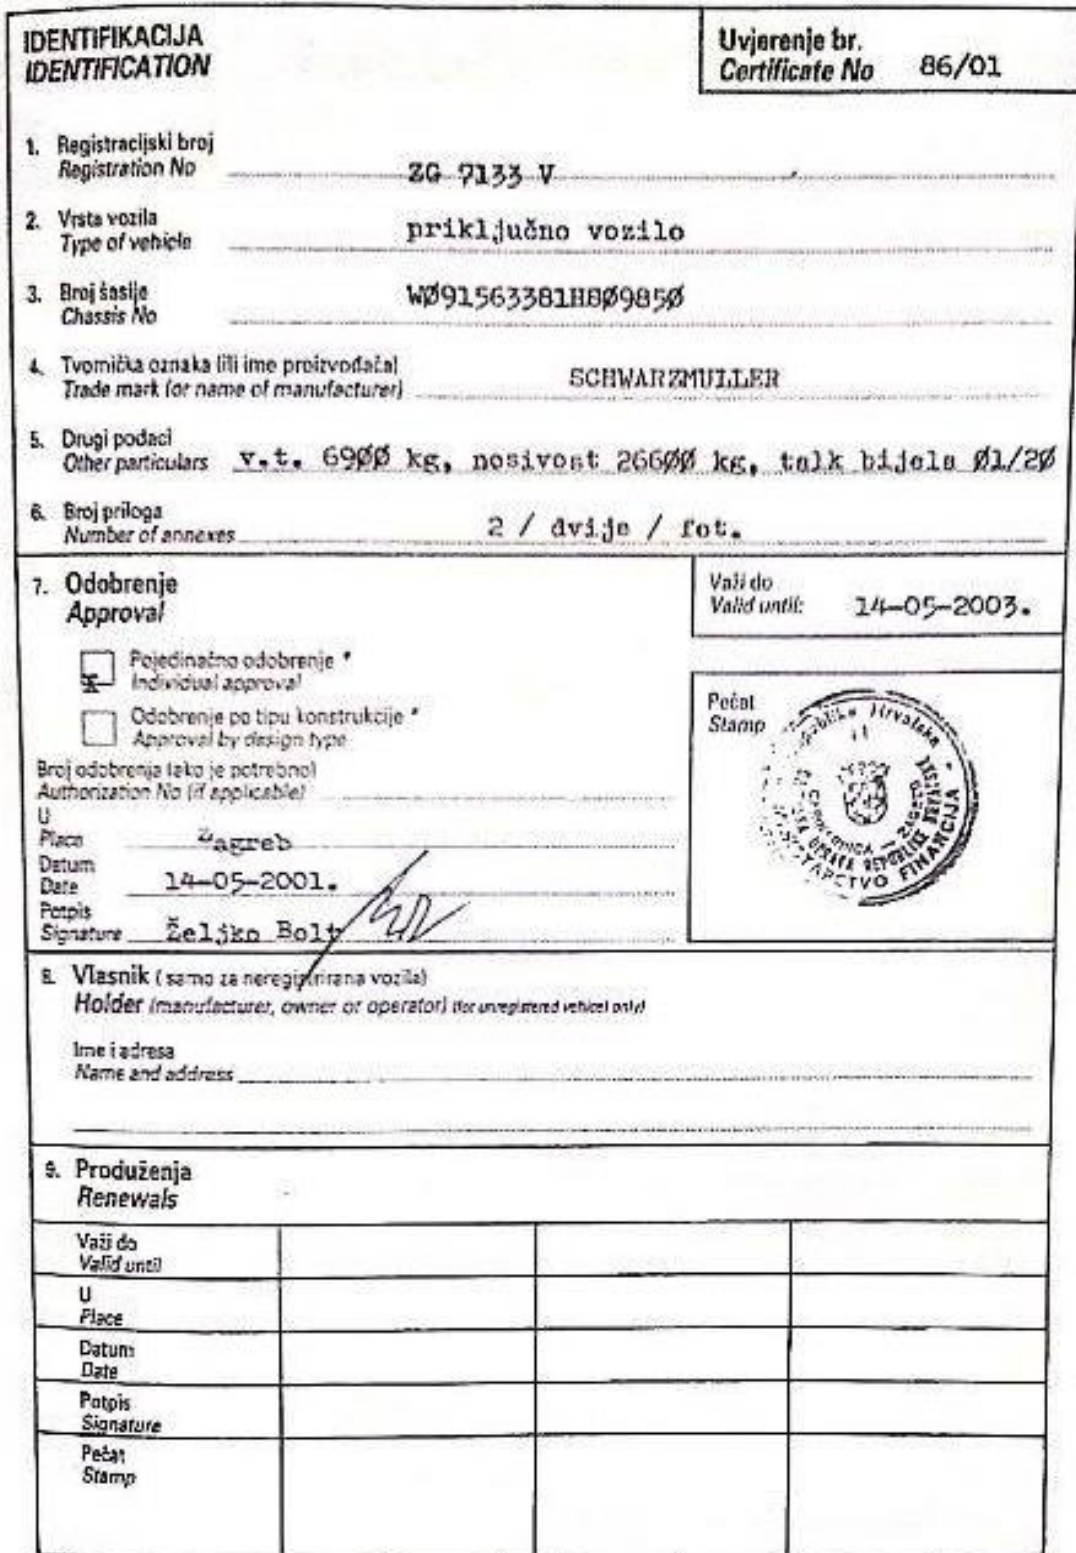 IDENTIFIKACIJA
IDENTIFICATION
Uvjerenje br.
Certificate No 86/01
1. Registracijski broj
Registration No ZG 7133 V
2. Vrsta vozila
Type of vehicle priključno vozilo
3. Broj šasije
Chassis No WØ91563381H8Ø985Ø
4. Tvornička oznaka (ili ime proizvođača)
Trade mark (or name of manufacturer) SCHWARZMULLER
5. Drugi podaci
Other particulars v.t. 69ØØ kg, nosivost 266ØØ kg, talk bijela Ø1/2Ø
6. Broj priloga
Number of annexes 2 / dvije / fot.
7. Odobrenje
Approval
Važi do
Valid until: 14-05-2003.
x Pojedinačno odobrenje *
Individual approval
Odobrenje po tipu konstrukcije *
Approval by design type
Broj odobrenja (ako je potrebno)
Authorization No (if applicable)
U
Place Zagreb
Datum
Date 14-05-2001.
Potpis
Signature Željko Bolt
Pečat
Stamp
Republika Hrvatska
MINISTARSTVO FINANCIJA
8. Vlasnik (samo za neregistrirana vozila)
Holder (manufacturer, owner or operator) (for unregistered vehicel only)
Ime i adresa
Name and address
9. Produženja
Renewals
Važi do
Valid until
U
Place
Datum
Date
Potpis
Signature
Pečat
Stamp